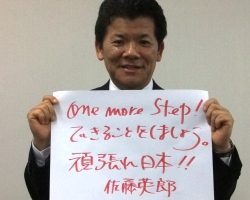 One more Step!
できることをしましょう。
頑張れ日本!!
佐藤英郎